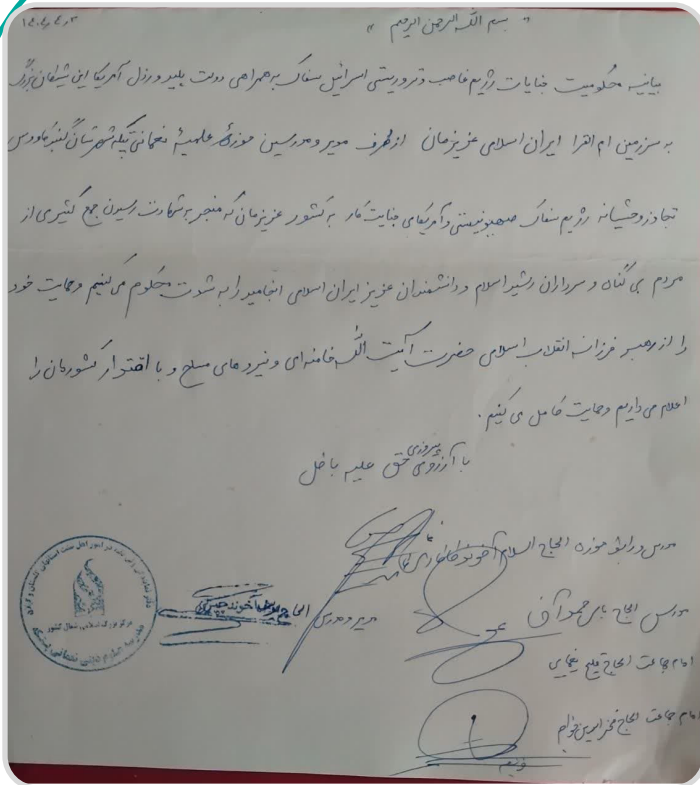 بسم الله الرحمن الرحیم
بیانیه محکومیت جنایات رژیم غاصب و تروریستی اسرائیل سفاک به همراهی دولت پلید و رذل آمریکا این شیطان بزرگ
به سرزمین ام القرا ایران اسلامی عزیزمان از طرف مدیر و مدرسین حوزه علمیه نعمانی پیکه شهرستان گنبدکاووس
تجاوز وحشیانه رژیم سفاک صهیونیستی و آمریکای جنایت کار به کشور عزیزمان که منجر به شهادت رسیدن جمع کثیری از
مردم بی گناه و سرداران رشید اسلام و دانشمندان عزیز ایران اسلامی انجامید را به شدت محکوم می کنیم و حمایت خود
را از رهبر فرزانه انقلاب اسلامی حضرت آیت الله خامنه ای و نیروهای مسلح و با اقتدار کشورمان را
اعلام می داریم و حمایت کامل می کنیم.
با آرزوی پیروزی حق علیه باطل
مدرس و رابط حوزه الحاج السلام آخوند
مدیر و مدرس الحاج آخوند
مدرس الحاج
امام جماعت الحاج
امام جماعت الحاج فخرالدین
مرکز بزرگ اسلامی شمال کشور